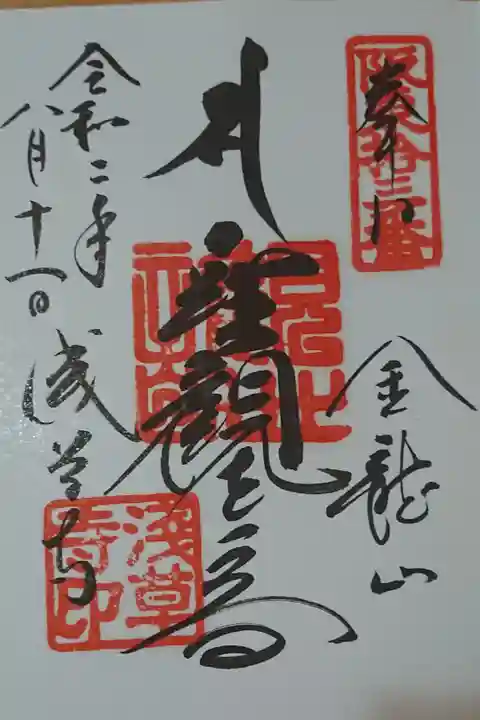 奉拝
阪東拾三番
金龍山
聖観世音
令和二年
八月十一日
浅草寺
浅草
寺印